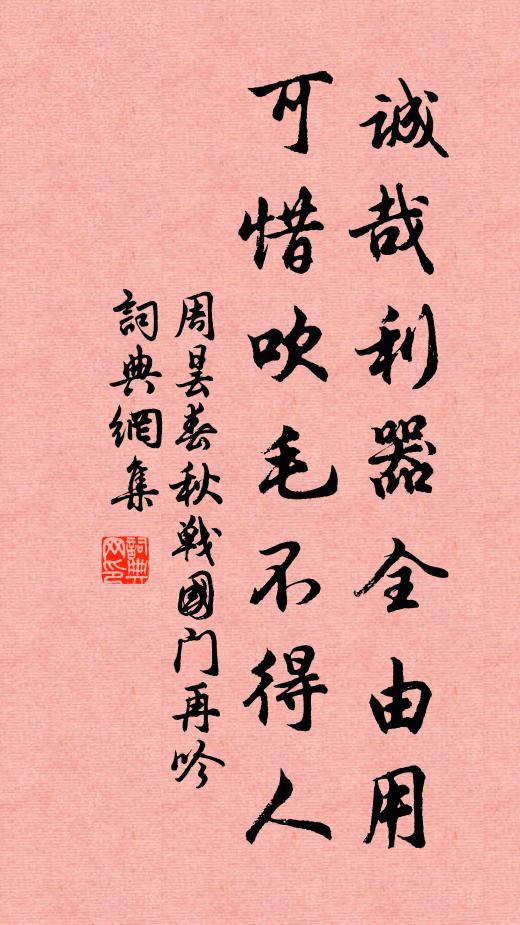 誠哉利器全由用
可惜吹毛不得人
周昙春秋戰國门再吟
詞典網集
詞典网印